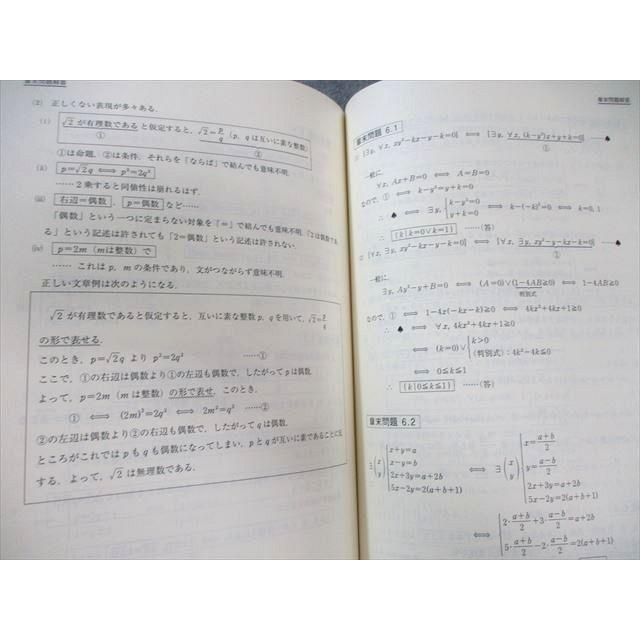 章末問題解答
(2) 正しくない表現が多々ある.
(i) √2 が有理数であると仮定すると, √2=p/q (p, q は互いに素な整数)
① ②
①は命題, ②は条件. それらを「ならば」で結んでも意味不明.
(ii) p=√2q ⟺ p²=2q²
……2乗すると同値性は崩れるはず.
(iii) 右辺=偶数, p=偶数 など……
「偶数」という一つに定まらない対象を「=」で結んでも意味不明.「2は偶数であ
る」という記述は許されても「2=偶数」という記述は許されない.
(iv) p=2m (mは整数) で
…… これは p, m の条件であり, 文がつながらず意味不明.
正しい文章例は次のようになる.
√2 が有理数であると仮定すると, 互いに素な整数 p, q を用いて, √2=p/q
の形で表せる.
このとき, p=√2q より p²=2q² ……①
ここで, ①の右辺は偶数より①の左辺も偶数で, したがって p は偶数.
よって, p=2m (m は整数) の形で表せ, このとき,
① ⟺ (2m)²=2q² ⟺ 2m²=q² ……②
②の左辺は偶数より②の右辺も偶数で, したがって q は偶数.
ところがこれでは p も q も偶数になってしまい, p と q が互いに素であることに反
する. よって, √2 は無理数である.
章末問題解答
章末問題 6.1
[∃y, ∀x, xy²-kx-y-k=0] ⟺ [∃y, ∀x, (k-y²)x+y+k=0] ……♠
①
一般に,
∀x, Ax+B=0 ⟺ A=B=0
なので, ① ⟺ k-y²=y+k=0
∴ ♠ ⟺ ∃y, { k-y²=0 y+k=0 ⟺ k-(-k)²=0 ⟺ k=0, 1
∴ {k|k=0∨k=1} ……(答)
[∀x, ∃y, xy²-y-kx-k=0] ⟺ [∀x, ∃y, xy²-y-kx-k=0] ……♠
①
一般に,
∃y, Ay²-y+B=0 ⟺ (A=0)∨(1-4AB≧0) ⟺ 1-4AB≧0
判別式
なので, ① ⟺ 1-4x(-kx-k)≧0 ⟺ 4kx²+4kx+1≧0
∴ ♠ ⟺ ∀x, 4kx²+4kx+1≧0
⟺ (k=0)∨{ k>0 (判別式): 4k²-4k≦0
⟺ 0≦k≦1
∴ {k|0≦k≦1} ……(答)
章末問題 6.2
∃(x y) { x+y=a x-y=b 2x+3y=a+2b 5x-2y=2(a+b+1) ⟺ ∃(x y) { x=(a+b)/2 y=(a-b)/2 2x+3y=a+2b 5x-2y=2(a+b+1)
⟺ { 2·(a+b)/2+3·(a-b)/2=a+2b
5·(a+b)/2-2·(a-b)/2=2(a+b+1)